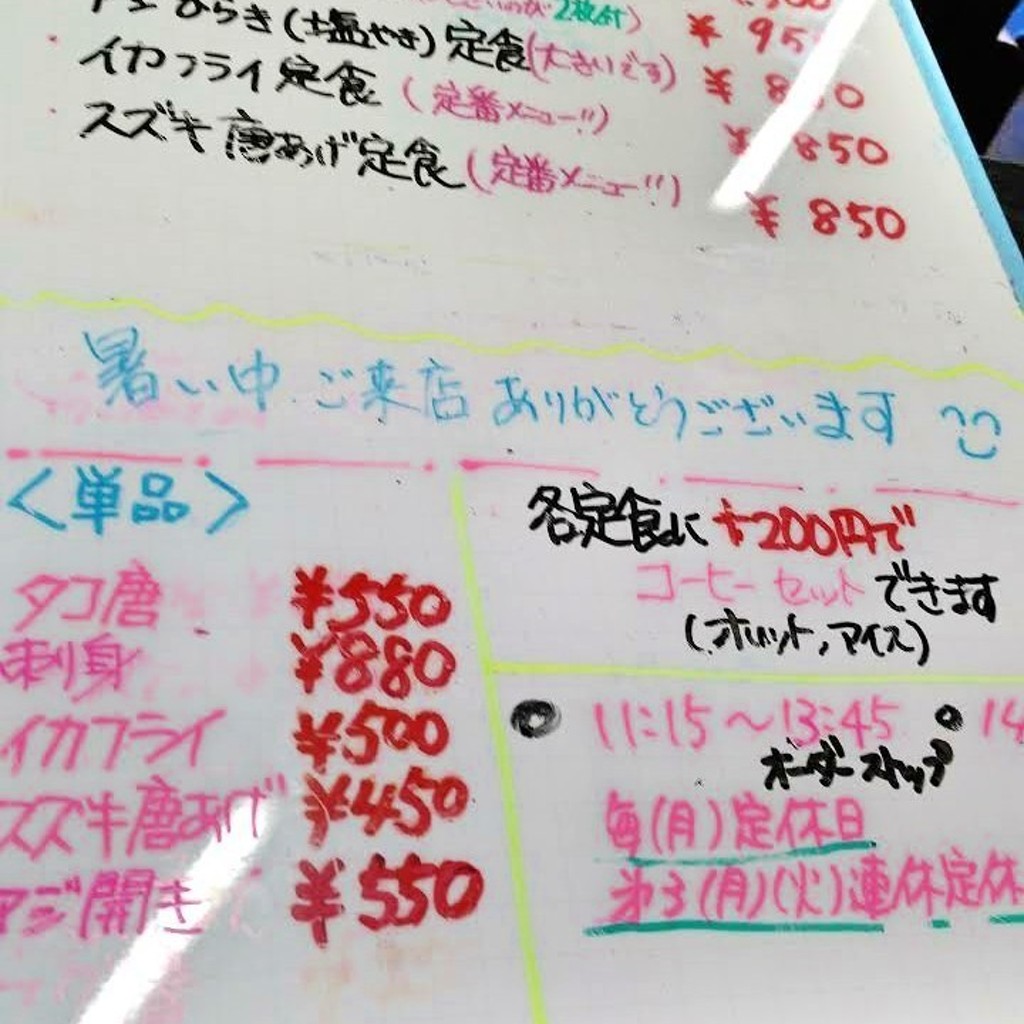 2枚付)
ひらき(塩やき)定食(大きいです)
イカフライ定食(定番メニュー!!) ¥850
スズキ唐あげ定食(定番メニュー!!) ¥850
暑い中ご来店ありがとうございます
<単品>
タコ唐 ¥550
刺り身 ¥880
イカフライ ¥500
スズキ唐あげ ¥450
アジ開き ¥550
各定食に+200円で
コーヒーセットできます
(ホット,アイス)
11:15〜13:45
オーダーストップ
毎(月)定休日
第3(月)(火)連休定休